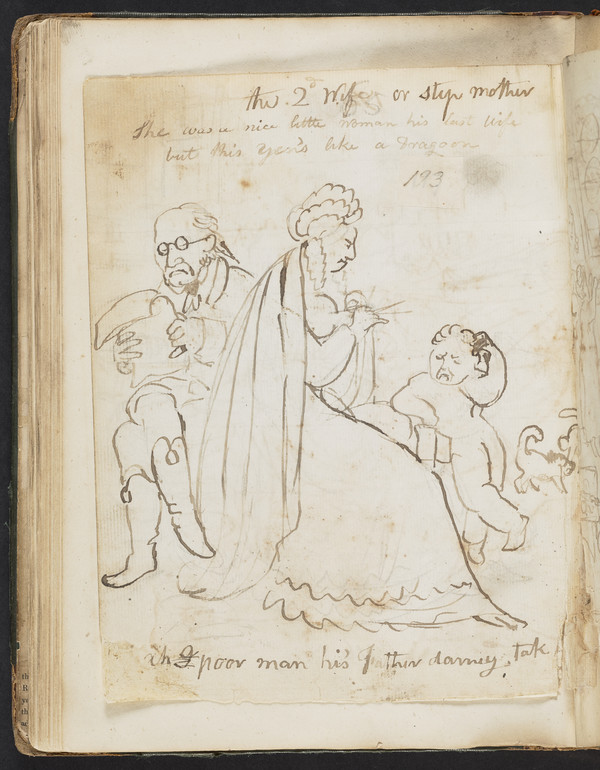 the 2d Wife or step mother
She was a nice little woman his last wife
but this Yen's like a Dragoon
193
poor man his father darney tak